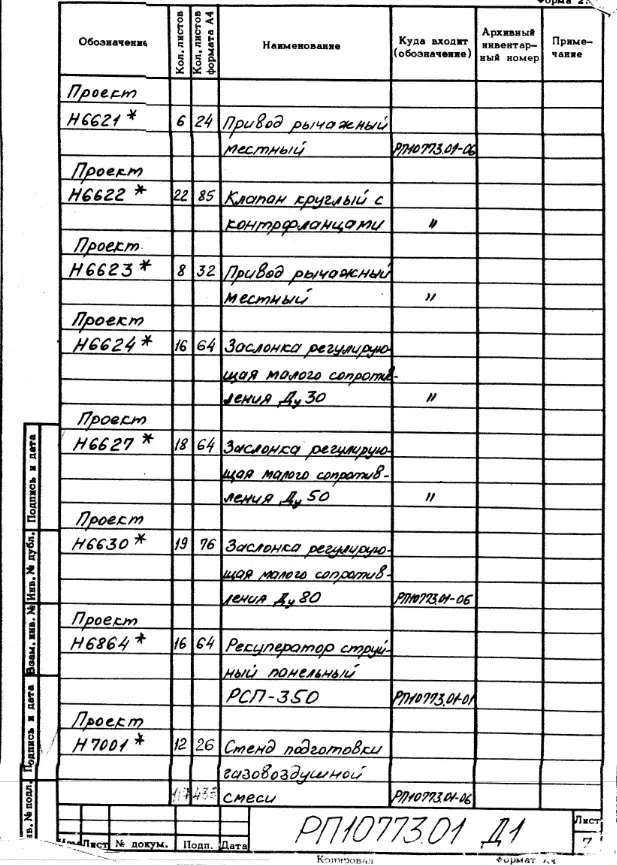 Форма 2
Обозначение Кол. листов Кол. листов формата А4 Наименование Куда входит (обозначение) Архивный инвентарный номер Примечание
Проект
Н6621 * 6 24 Привод рычажный
местный РП10773.01-06
Проект
Н6622 * 22 85 Клапан круглый с
контрфланцами "
Проект
Н6623 * 8 32 Привод рычажный
местный "
Проект
Н6624 * 16 64 Заслонка регулирую-
щая малого сопротив-
ления Ду 30 "
Проект
Н6627 * 18 64 Заслонка регулирую-
щая малого сопротив-
ления Ду 50 "
Проект
Н6630 * 19 76 Заслонка регулирую-
щая малого сопротив-
ления Ду 80 РП10773.01-06
Проект
Н6864 * 16 64 Рекуператор струй-
ный панельный
РСП-350 РП10773.01-01
Проект
Н7001 * 12 26 Стенд подготовки
газовоздушной
117 435 смеси РП10773.01-06
РП10773.01 Д1
Лист
7
Лист № докум. Подп. Дата
Копировал Формат А3
Подпись и дата
Инв. № дубл.
Взам. инв. №
Подпись и дата
в. № подл.